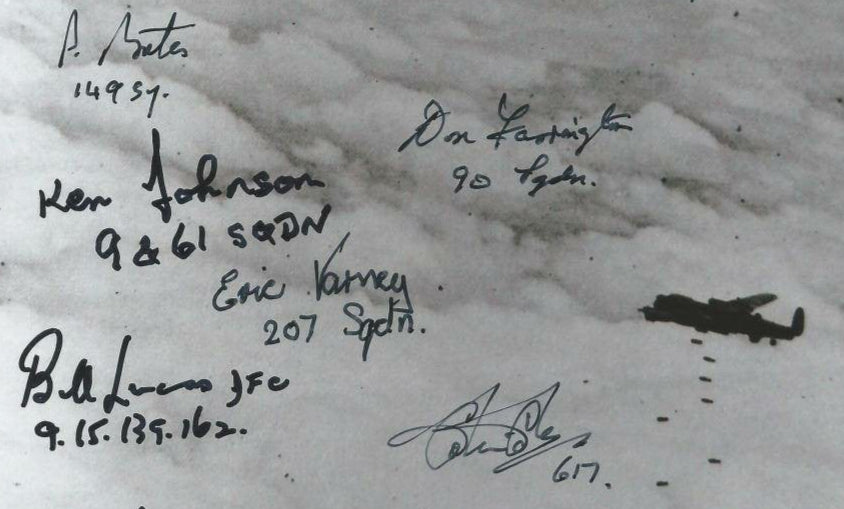 P. Bates
149 Sq.
Don Farrington
90 Sqdn.
Ken Johnson
9 & 61 SQDN
Eric Varney
207 Sqdn.
Bill Lucas DFC
9. 15. 139. 162.
617.